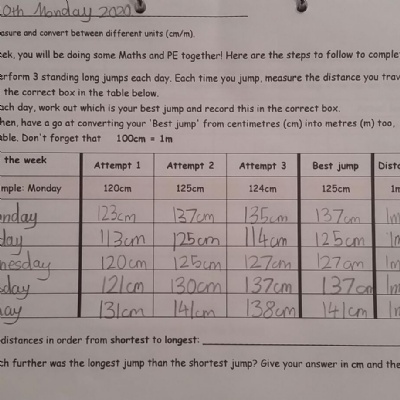 0th Monday 2020
asure and convert between different units (cm/m).
eek, you will be doing some Maths and PE together! Here are the steps to follow to comple
erform 3 standing long jumps each day. Each time you jump, measure the distance you trav
the correct box in the table below.
ach day, work out which is your best jump and record this in the correct box.
hen, have a go at converting your 'Best jump' from centimetres (cm) into metres (m) too,
able. Don't forget that 100cm = 1m
the week Attempt 1 Attempt 2 Attempt 3 Best jump Dista
mple: Monday 120cm 125cm 124cm 125cm 1m
nday 123cm 137cm 135cm 137cm 1m
day 113cm 125cm 114cm 125cm 1m
nesday 120cm 125cm 127cm 127cm 1m
sday 121cm 130cm 137cm 137cm 1m
day 131cm 141cm 138cm 141cm 1m
distances in order from shortest to longest:
ch further was the longest jump than the shortest jump? Give your answer in cm and the